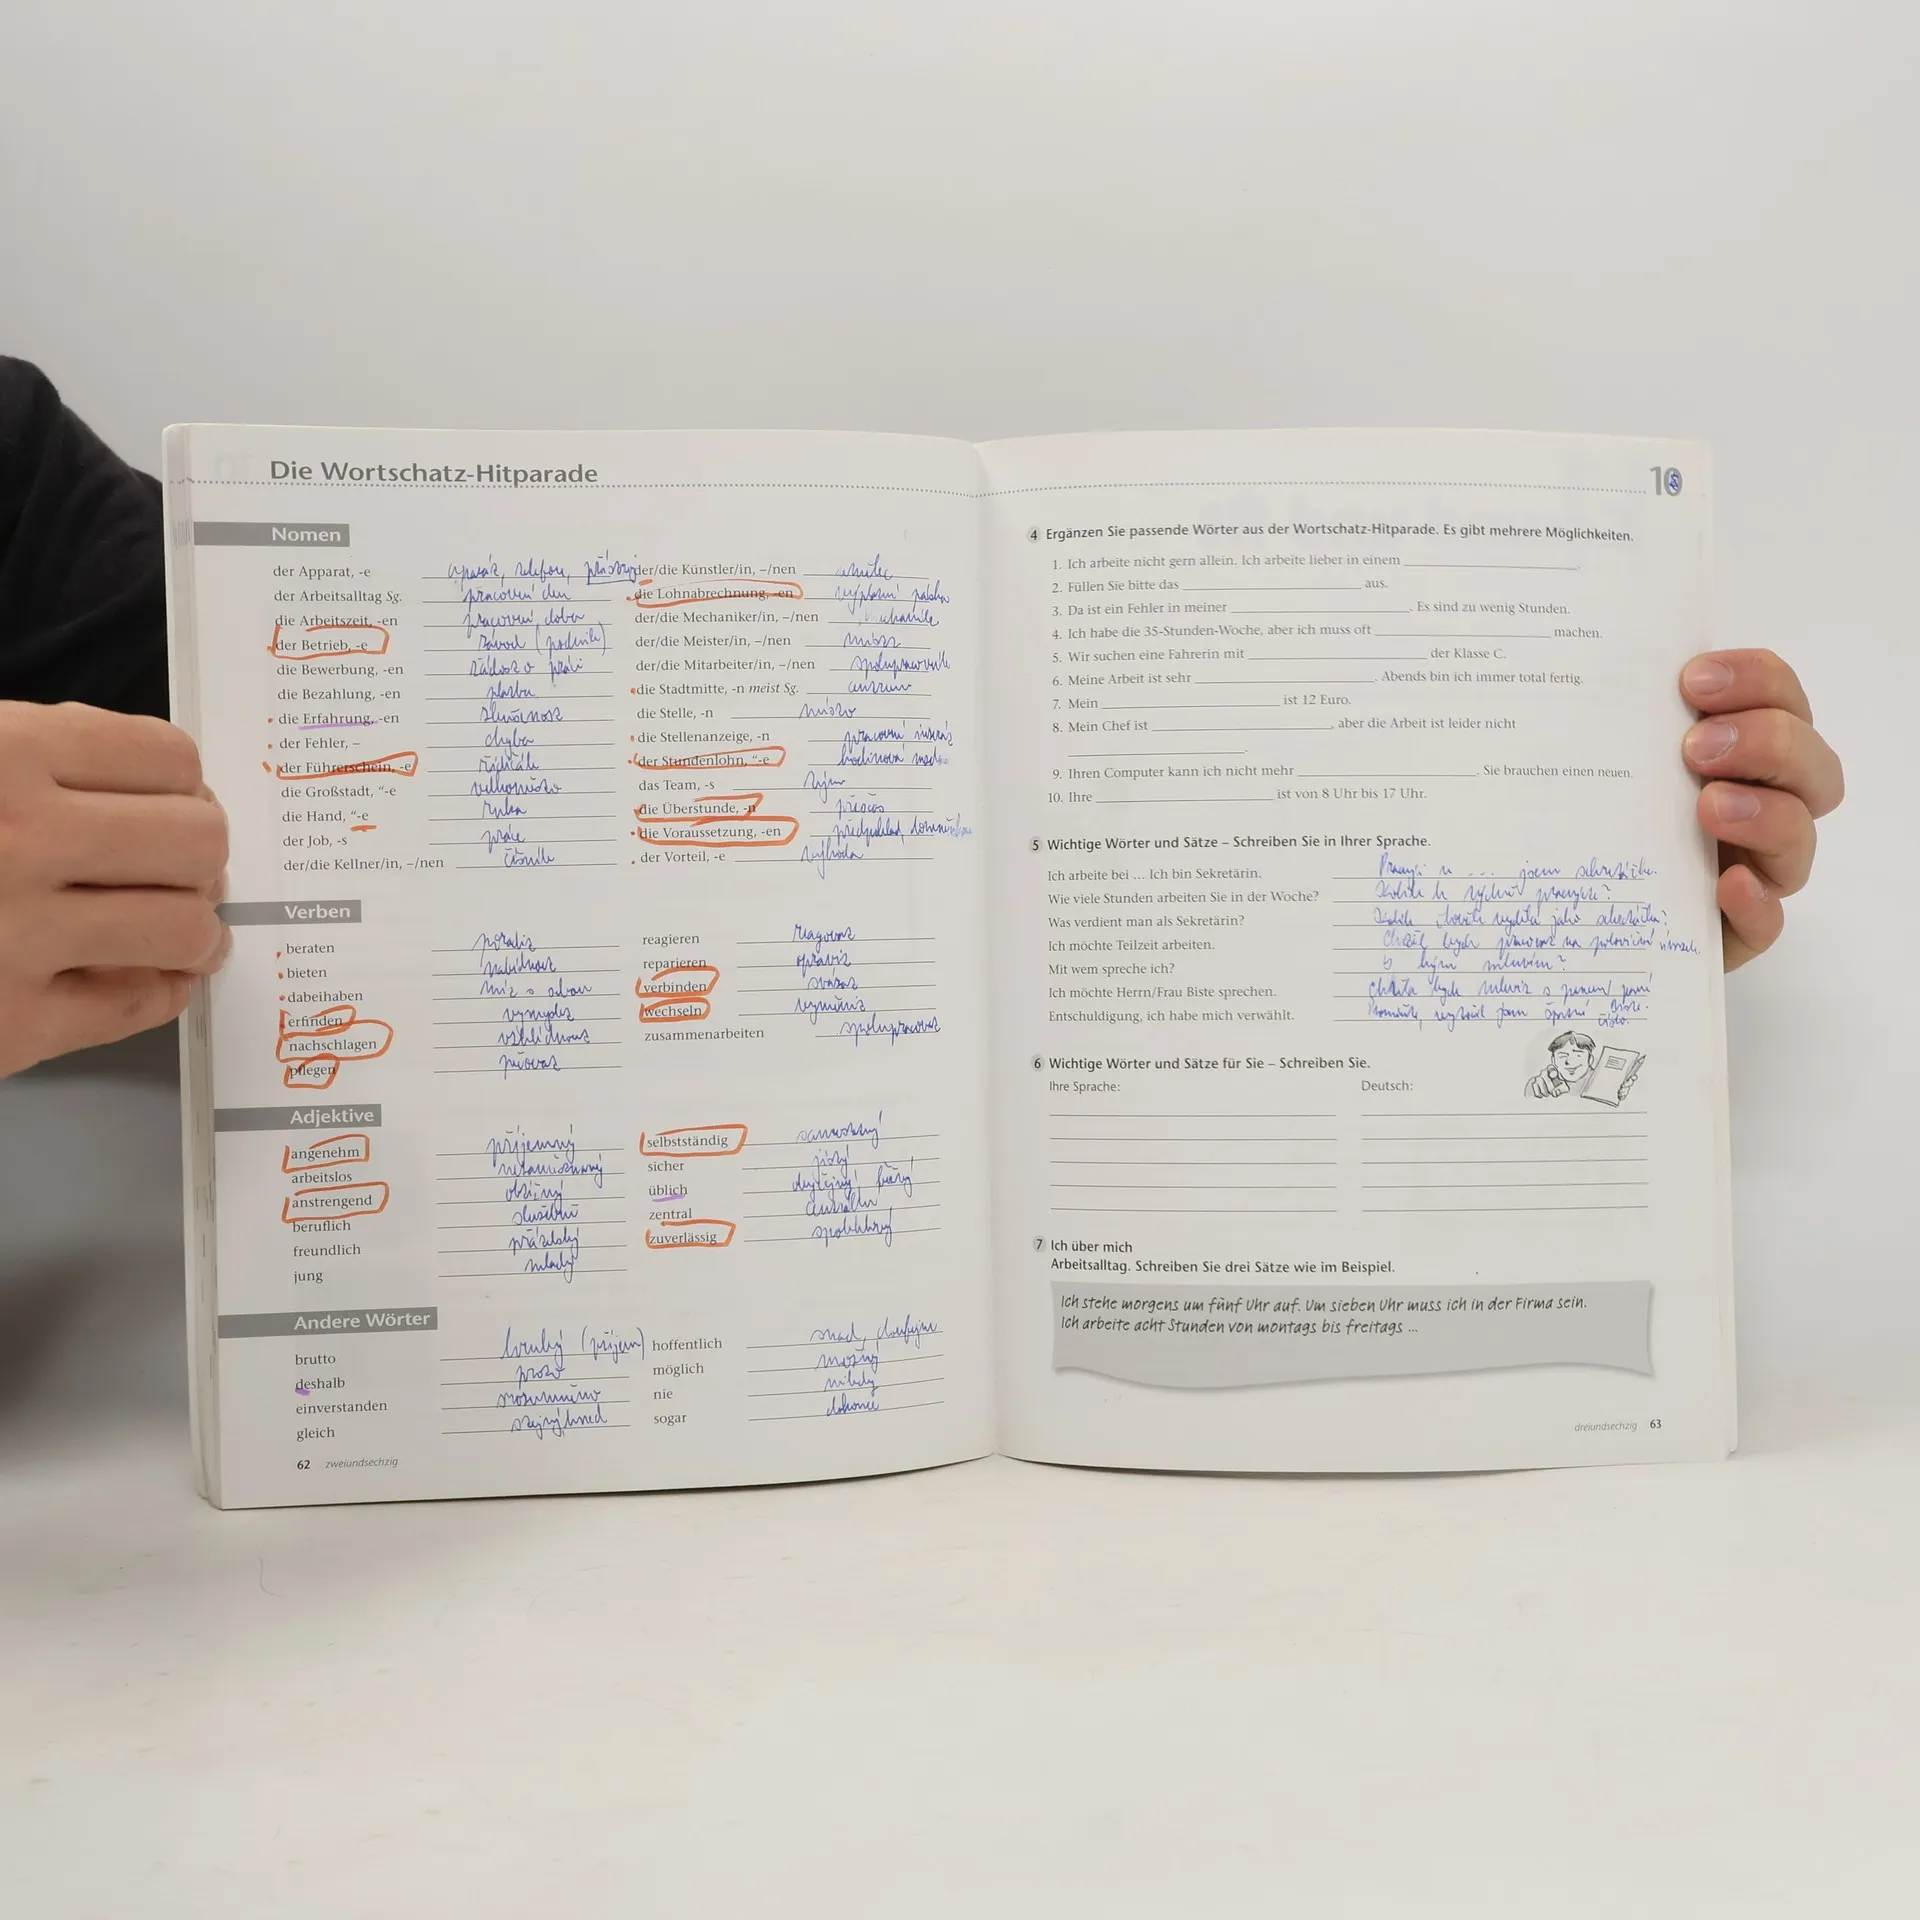 Die Wortschatz-Hitparade
Nomen
der Apparat, -e aparát, telefon, přístroj
der Arbeitsalltag Sg. pracovní den
die Arbeitszeit, -en pracovní doba
der Betrieb, -e závod (podnik)
die Bewerbung, -en žádost o práci
die Bezahlung, -en platba
die Erfahrung, -en zkušenost
der Fehler, – chyba
der Führerschein, -e řidičák
die Großstadt, “-e velkoměsto
die Hand, “-e ruka
der Job, -s práce
der/die Kellner/in, –/nen číšník
der/die Künstler/in, –/nen umělec
die Lohnabrechnung, -en výplatní páska
der/die Mechaniker/in, –/nen mechanik
der/die Meister/in, –/nen mistr
der/die Mitarbeiter/in, –/nen spolupracovník
die Stadtmitte, -n meist Sg. centrum
die Stelle, -n místo
die Stellenanzeige, -n pracovní inzerát
der Stundenlohn, “-e hodinová mzda
das Team, -s tým
die Überstunde, -n přesčas
die Voraussetzung, -en předpoklad, domněnka
der Vorteil, -e výhoda
Verben
beraten poradit
bieten nabídnout
dabeihaben mít s sebou
erfinden vymyslet
nachschlagen vzhlédnout
pflegen pečovat
reagieren reagovat
reparieren opravit
verbinden svázat
wechseln vyměnit
zusammenarbeiten spolupracovat
Adjektive
angenehm příjemný
arbeitslos nezaměstnaný
anstrengend obtížný
beruflich služebně
freundlich přátelský
jung mladý
selbstständig samostatný
sicher jistý
üblich obyčejný, běžný
zentral centrálně
zuverlässig spolehlivý
Andere Wörter
brutto hrubý (příjem)
deshalb proto
einverstanden srozuměno
gleich stejný, hned
hoffentlich snad, doufejme
möglich možný
nie nikdy
sogar dokonce
62 zweiundsechzig
10
4 Ergänzen Sie passende Wörter aus der Wortschatz-Hitparade. Es gibt mehrere Möglichkeiten.
1. Ich arbeite nicht gern allein. Ich arbeite lieber in einem ____.
2. Füllen Sie bitte das ____ aus.
3. Da ist ein Fehler in meiner ____. Es sind zu wenig Stunden.
4. Ich habe die 35-Stunden-Woche, aber ich muss oft ____ machen.
5. Wir suchen eine Fahrerin mit ____ der Klasse C.
6. Meine Arbeit ist sehr ____. Abends bin ich immer total fertig.
7. Mein ____ ist 12 Euro.
8. Mein Chef ist ____, aber die Arbeit ist leider nicht
____.
9. Ihren Computer kann ich nicht mehr ____. Sie brauchen einen neuen.
10. Ihre ____ ist von 8 Uhr bis 17 Uhr.
5 Wichtige Wörter und Sätze – Schreiben Sie in Ihrer Sprache.
Ich arbeite bei ... Ich bin Sekretärin. Pracuji u ... jsem sekretářka.
Wie viele Stunden arbeiten Sie in der Woche? Kolik h týdně pracujete?
Was verdient man als Sekretärin? Kolik člověk vydělá jako sekretářka?
Ich möchte Teilzeit arbeiten. Chtěl bych pracovat na poloviční úvazek.
Mit wem spreche ich? S kým mluvím?
Ich möchte Herrn/Frau Biste sprechen. Chtěla bych mluvit s panem/paní Biste.
Entschuldigung, ich habe mich verwählt. Promiňte, vytočil jsem špatné číslo.
6 Wichtige Wörter und Sätze für Sie – Schreiben Sie.
Ihre Sprache: Deutsch:
7 Ich über mich
Arbeitsalltag. Schreiben Sie drei Sätze wie im Beispiel.
Ich stehe morgens um fünf Uhr auf. Um sieben Uhr muss ich in der Firma sein.
Ich arbeite acht Stunden von montags bis freitags ...
dreiundsechzig 63